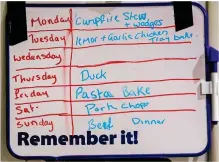 Monday Campfire Stew
+ wedges
Tuesday Lemon + Garlic Chicken
Tray bake
Wedensday
Thursday Duck
Friday Pasta Bake
Sat. Pork Chops
Sunday Beef Dinner
Remember it!